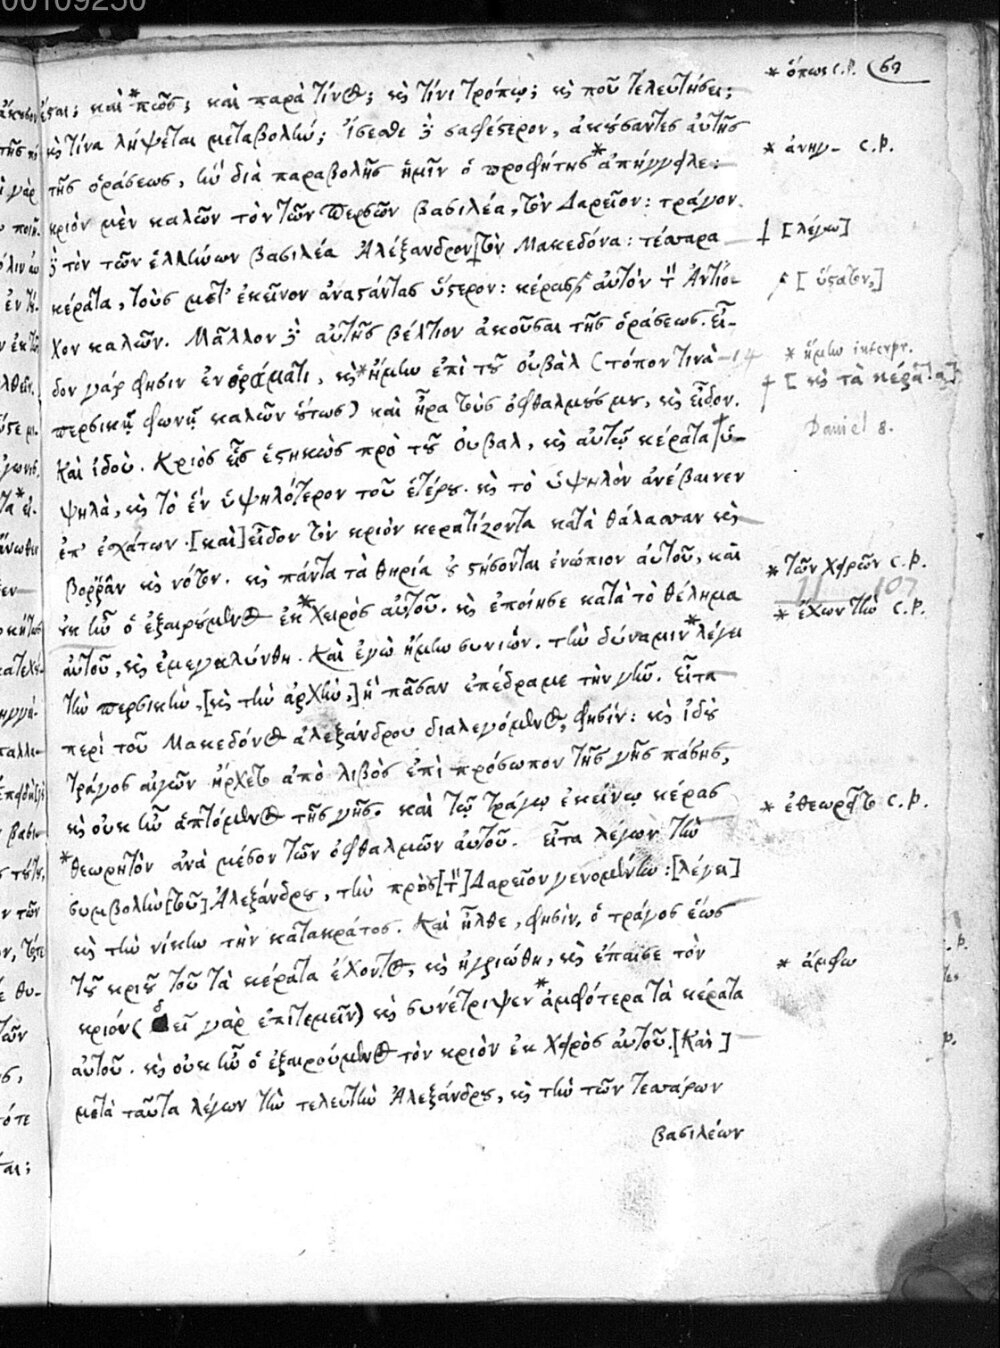 00109250
* ὅπως C.P. 69
ἔσται; καὶ *πῶς; καὶ παρὰ τίνος; καὶ τίνι τρόπῳ; καὶ ποῦ τελευτήσει;
καὶ τίνα λήψεται μεταβολὴν; ἴσεσθε δὲ σαφέστερον, ἀκούσαντες αὐτῆς
τῆς ὁράσεως, ἣν διὰ παραβολῆς ἡμῖν ὁ προφήτης *ἀπήγγειλε:
* ἀνήγ- C.P.
κριὸν μὲν καλῶν τὸν τῶν Περσῶν βασιλέα, τὸν Δαρεῖον: τράγον
δὲ τὸν τῶν ἑλλήνων βασιλέα Ἀλέξανδρον † τὸν Μακεδόνα: τέσσαρα
† [λέγω]
κέρατα, τοὺς μετ' ἐκεῖνον ἀναστάντας ὕστερον: κέρας αὐτὸν τὸν Ἀντίο-
[ὕστατον,]
χον καλῶν. Μᾶλλον δὲ αὐτῆς βέλτιον ἀκοῦσαι τῆς ὁράσεως. εἶ-
δον γάρ φησιν ἐν ὁράματι, καὶ *ἤμην ἐπὶ τοῦ οὐβὰλ (τόπον τινὰ
* ἤμην interpr.
περσικῇ φωνῇ καλῶν οὕτως) καὶ ἦρα τοὺς ὀφθαλμούς μου, καὶ εἶδον.
† [καὶ τὰ κέρατα]
Καὶ ἰδοὺ. Κριὸς εἷς ἑστηκὼς πρὸ τοῦ Οὐβαλ, καὶ αὐτῷ κέρατα † ὑ-
Daniel 8.
ψηλὰ, καὶ τὸ ἓν ὑψηλότερον τοῦ ἑτέρου. καὶ τὸ ὑψηλὸν ἀνέβαινεν
ἐπ' ἐσχάτων. [καὶ] εἶδον τὸν κριὸν κερατίζοντα κατὰ θάλασσαν καὶ
βοῤῥᾶν καὶ νότον. καὶ πάντα τὰ θηρία οὐ στήσονται ἐνώπιον αὐτοῦ, καὶ
* τῶν χειρῶν C.P.
οὐκ ἦν ὁ ἐξαιρούμενος ἐκ *χειρὸς αὐτοῦ. καὶ ἐποίησε κατὰ τὸ θέλημα
* ἔχων τὴν C.P.
αὐτοῦ, καὶ ἐμεγαλύνθη. Καὶ ἐγὼ ἤμην συνιών. τὴν δύναμιν *λέγει
τὴν περσικὴν, [καὶ τὴν ἀρχὴν,] ἣ πᾶσαν ἐπέδραμε τὴν γῆν. Εἶτα
περὶ τοῦ Μακεδόνος ἀλεξάνδρου διαλεγόμενος, φησίν: καὶ ἰδοὺ
τράγος αἰγῶν ἤρχετο ἀπὸ λιβὸς ἐπὶ πρόσωπον τῆς γῆς πάσης,
καὶ οὐκ ἦν ἁπτόμενος τῆς γῆς. καὶ τῷ τράγῳ ἐκείνῳ κέρας
* ἐθεωρεῖτο C.P.
*θεωρητὸν ἀνὰ μέσον τῶν ὀφθαλμῶν αὐτοῦ. Εἶτα λέγων τὴν
συμβολὴν [τοῦ] Ἀλεξάνδρου, τὴν πρὸς [τὸν] Δαρεῖον γενομένην: [λέγει]
καὶ τὴν νίκην τὴν κατακράτος. Καὶ ἦλθε, φησὶν, ὁ τράγος ἕως
τοῦ κριοῦ τοῦ τὰ κέρατα ἔχοντος, καὶ ἠγριώθη, καὶ ἔπαισε τὸν
* ἄμφω
κριόν (δεῖ γὰρ ἐπιτεμεῖν) καὶ συνέτριψεν *ἀμφότερα τὰ κέρατα
αὐτοῦ. καὶ οὐκ ἦν ὁ ἐξαιρούμενος τὸν κριὸν ἐκ χειρὸς αὐτοῦ. [Καὶ]
μετὰ ταῦτα λέγων τὴν τελευτὴν Ἀλεξάνδρου, καὶ τὴν τῶν τεσσάρων
βασιλέων